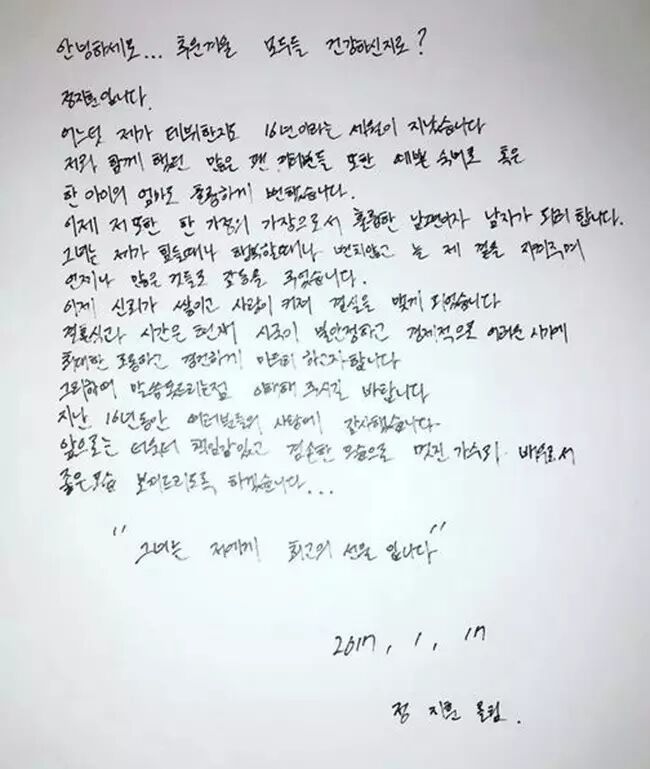 안녕하세요... 추운겨울 모두들 건강하신지요?
정지훈입니다.
어느덧 제가 데뷔한지도 16년이라는 세월이 지났습니다
저와 함께 했던 많은 팬 여러분들 또한 예쁜 숙녀로 혹은
한 아이의 엄마로 훌륭하게 변했습니다.
이제 저 또한 한 가정의 가장으로서 훌륭한 남편이자 남자가 되려 합니다.
그녀는 제가 힘들때나 행복할때나 변치않고 늘 제 곁을 지켜주며
언제나 많은 것들로 감동을 주었습니다.
이제 신뢰가 쌓이고 사랑이 커져 결실을 맺게 되었습니다
결혼식과 시간은 현재 시국이 불안정하고 경제적으로 어려운 시기에
최대한 조용하고 경건하게 마드리 하고자합니다
그리하여 말씀못드리는점 이해해 주시길 바랍니다
지난 16년동안 여러분들의 사랑에 감사했습니다.
앞으로는 더욱더 책임감있고 겸손한 모습으로 멋진 가수와 배우로서
좋은모습 보여드리도록 하겠습니다...
"그녀는 저에게 최고의 선물 입니다"
2017, 1, 17
정 지훈 올림.